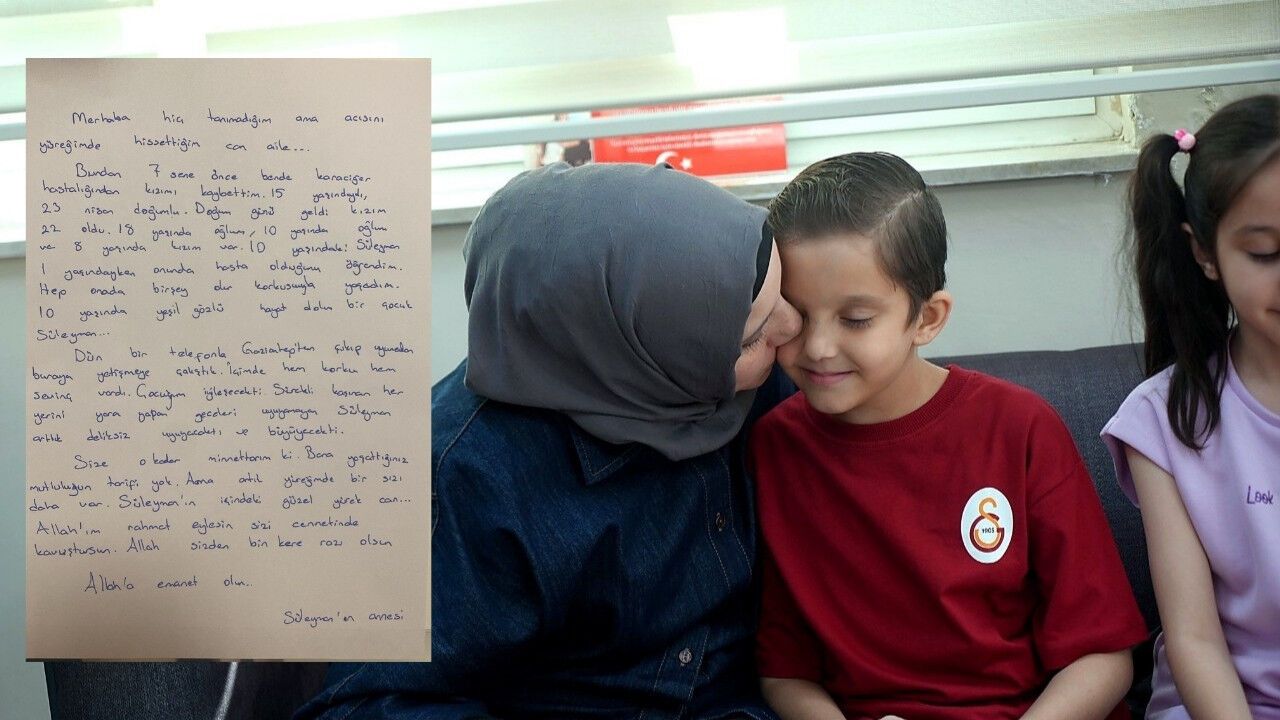 Merhaba hiç tanımadığım ama acısını
yüreğimde hissettiğim can aile...
Bundan 7 sene önce bende karaciğer
hastalığından kızımı kaybettim. 15 yaşındaydı,
23 nisan doğumlu. Doğum günü geldi kızım
22 oldu. 18 yaşında oğlum, 10 yaşında oğlum
ve 8 yaşında kızım var. 10 yaşındaki Süleyman
1 yaşındayken onunda hasta olduğunu öğrendim.
Hep onada birşey olur korkusuyla yaşadım.
10 yaşında yeşil gözlü hayat dolu bir çocuk
Süleyman...
Dün bir telefonla Gaziantep'ten çıkıp
buraya yetişmeye çalıştık. İçimde hem korku hem
sevinç vardı. Çocuğum iyileşecekti. Sürekli kaşınan her
yerini yara yapan geceleri uyuyamayan Süleyman
artık deliksiz uyuyacaktı ve büyüyecekti.
Size o kadar minnettarım ki. Bana yaşattığınız
mutluluğun tarifi yok. Ama artık yüreğimde bir sızı
daha var. Süleyman'ın içindeki güzel yürek can...
Allah'ım rahmet eylesin sizi cennetinde
kavuştursun. Allah sizden bin kere razı olsun
Allah'a emanet olun..
Süleyman'ın annesi
1905
Look